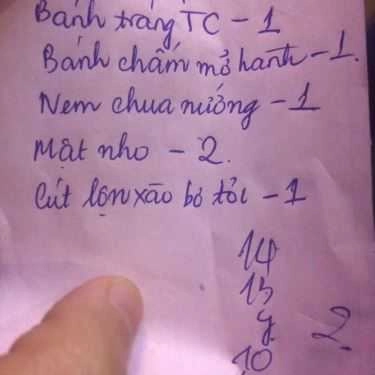 Bánh tráng TC - 1
Bánh chấm mỡ hành - 1.
Nem chua nướng - 1
Mật nho - 2.
Cút lộn xào bơ tỏi - 1
14
13
y
2
10